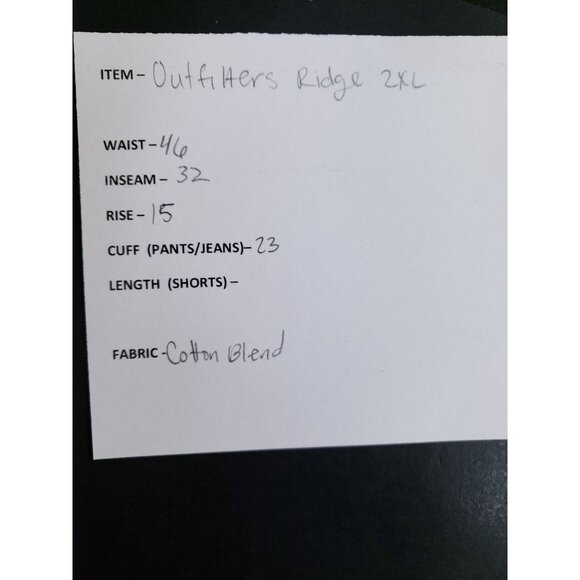 ITEM – Outfitters Ridge 2XL
WAIST – 46
INSEAM – 32
RISE – 15
CUFF (PANTS/JEANS)– 23
LENGTH (SHORTS) –
FABRIC - Cotton Blend